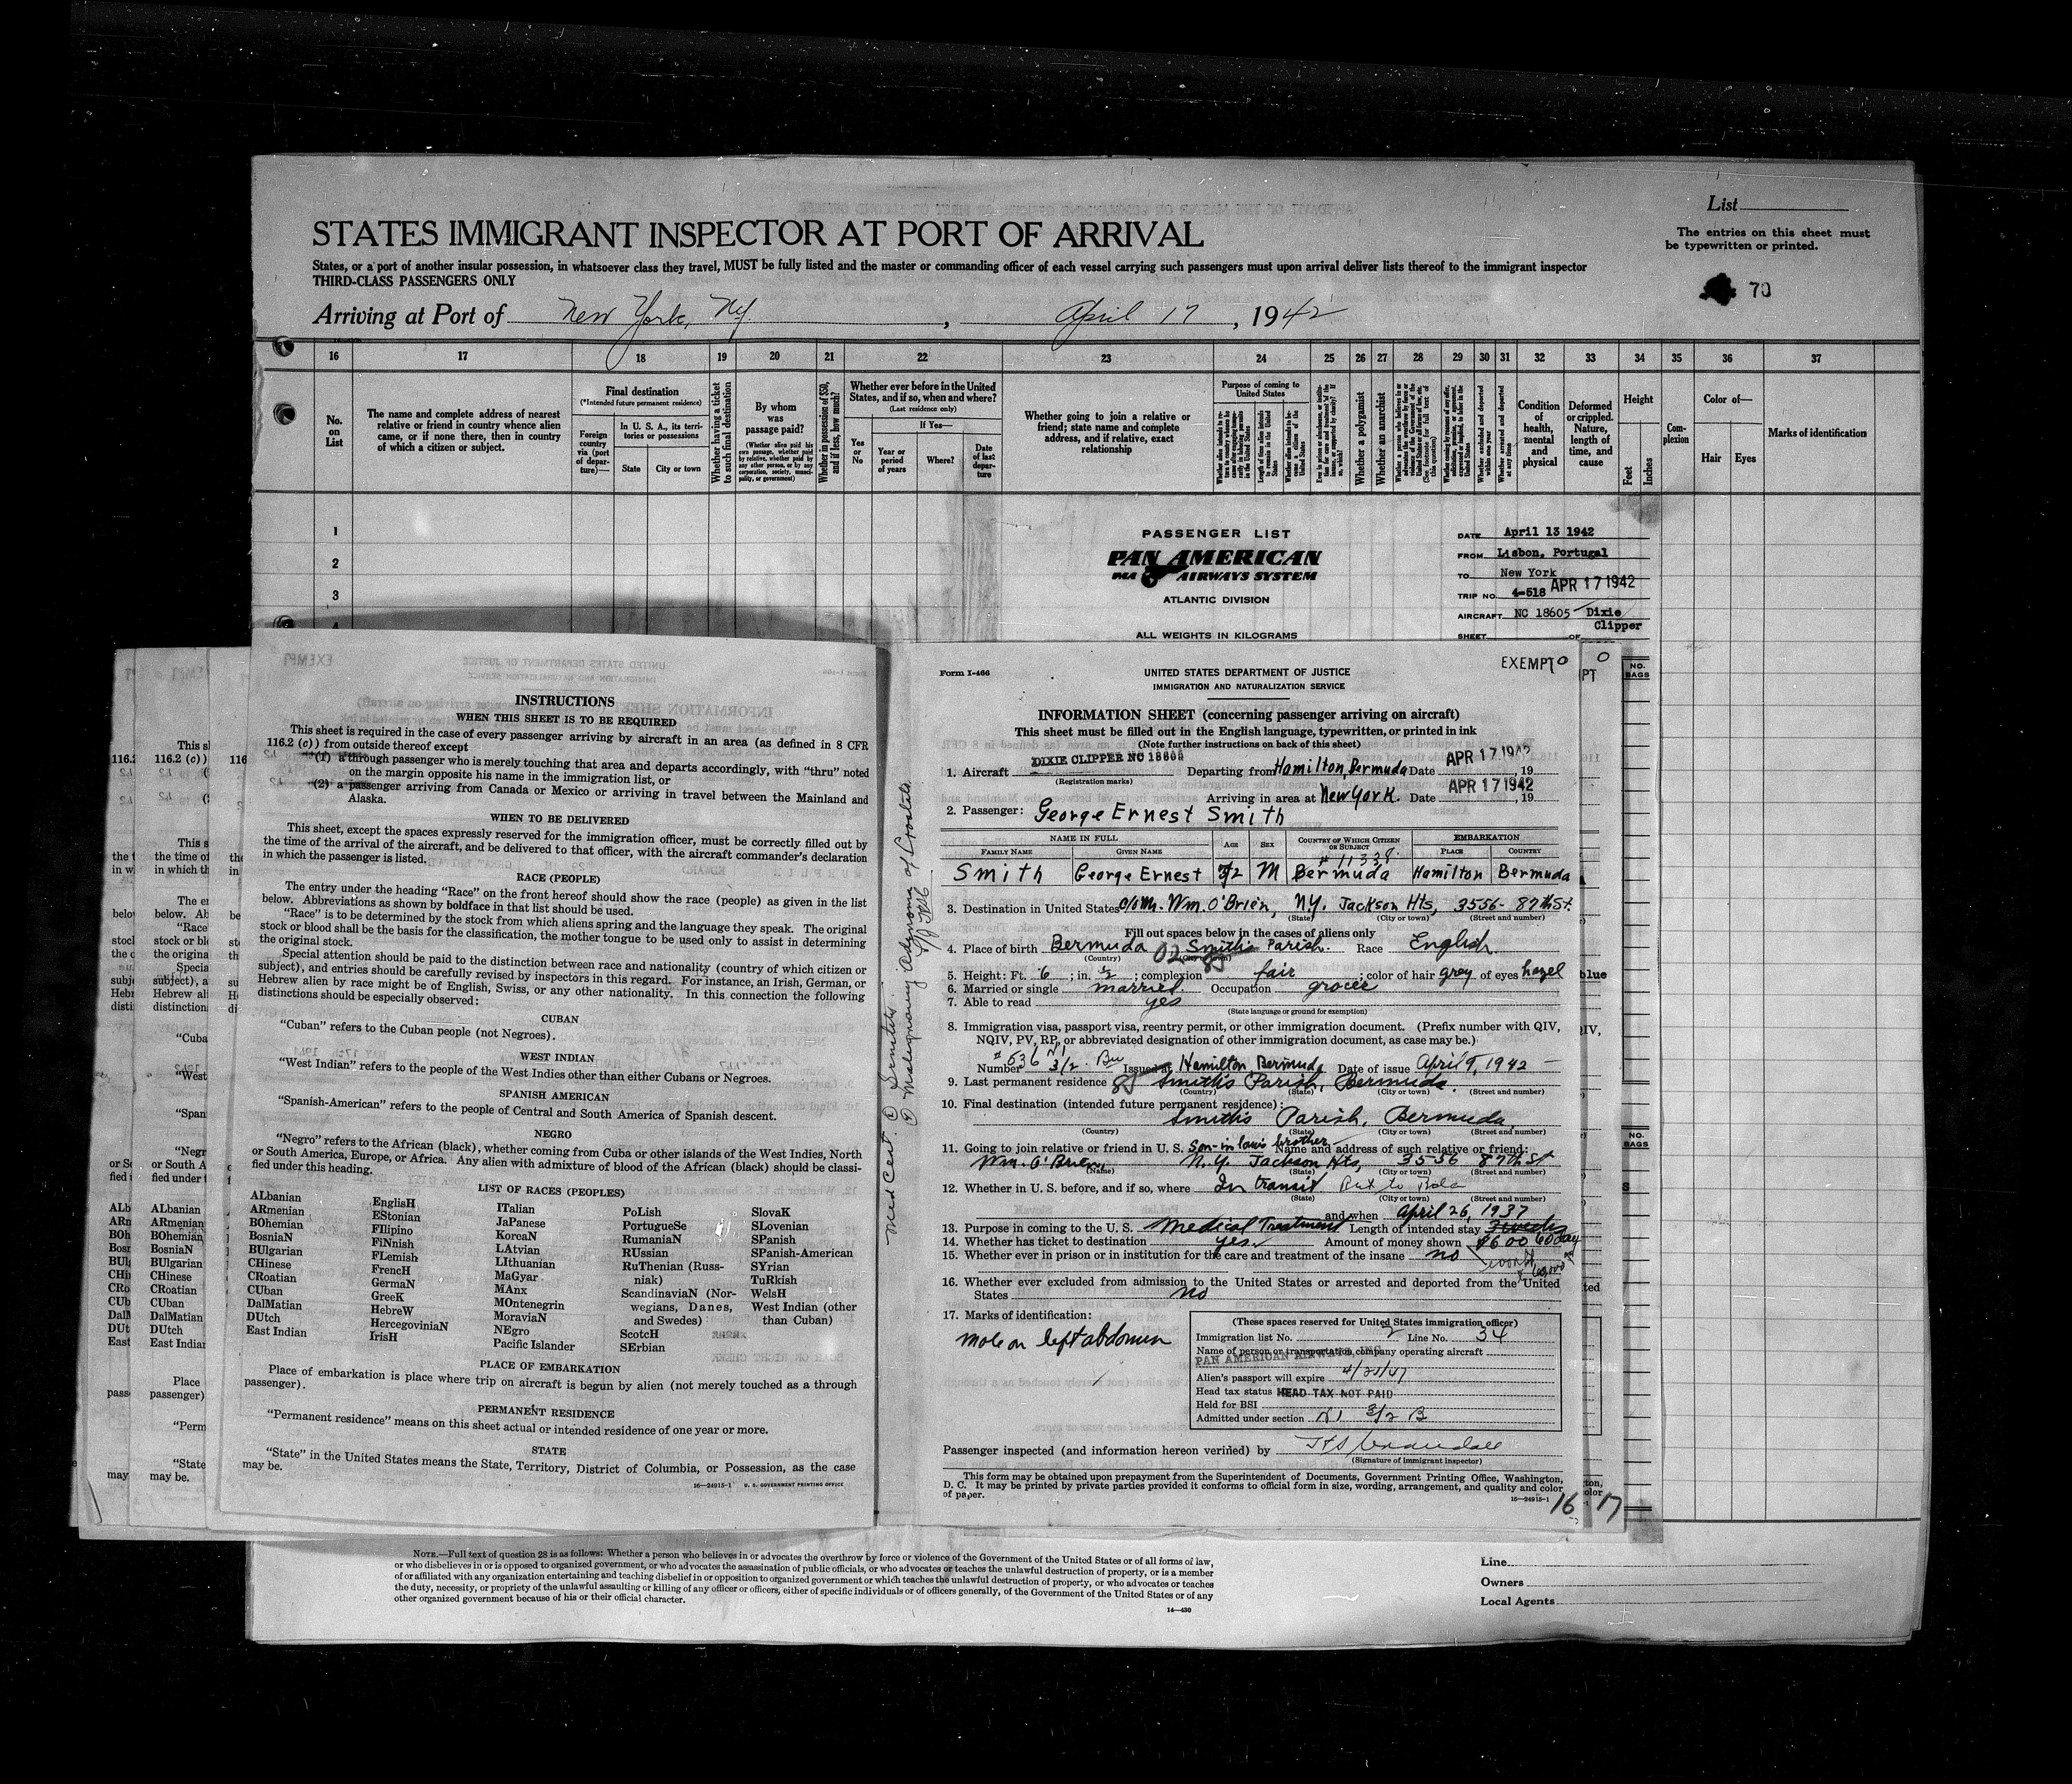 List
STATES IMMIGRANT INSPECTOR AT PORT OF ARRIVAL
The entries on this sheet must
be typewritten or printed.
States, or a port of another insular possession, in whatsoever class they travel, MUST be fully listed and the master or commanding officer of each vessel carrying such passengers must upon arrival deliver lists thereof to the immigrant inspector
THIRD-CLASS PASSENGERS ONLY
70
Arriving at Port of New York, NY. , April 17 , 1942
16 17 18 19 20 21 22 23 24 25 26 27 28 29 30 31 32 33 34 35 36 37
No. on List
The name and complete address of nearest relative or friend in country whence alien came, or if none there, then in country of which a citizen or subject.
Final destination
(*Intended future permanent residence)
Foreign country via (port of departure)—
In U. S. A., its territories or possessions
State
City or town
Whether having a ticket to such final destination
By whom was passage paid?
(Whether alien paid his own passage, whether paid by relative, whether paid by any other person, or by any corporation, society, municipality, or government)
Whether in possession of $50, and if less, how much?
Whether ever before in the United States, and if so, when and where?
(Last residence only)
If Yes—
Yes or No
Year or period of years
Where?
Date of last departure
Whether going to join a relative or friend; state name and complete address, and if relative, exact relationship
Purpose of coming to United States
Whether a polygamist
Whether an anarchist
Condition of health, mental and physical
Deformed or crippled. Nature, length of time, and cause
Height
Feet
Inches
Complexion
Color of—
Hair
Eyes
Marks of identification
1
2
3
4
PASSENGER LIST
PAN AMERICAN
PAA AIRWAYS SYSTEM
ATLANTIC DIVISION
ALL WEIGHTS IN KILOGRAMS
DATE April 13 1942
FROM Lisbon, Portugal
TO New York
APR 17 1942
TRIP NO. 4-518
AIRCRAFT NC 18605 Dixie Clipper
SHEET OF
NO. BAGS
INSTRUCTIONS
WHEN THIS SHEET IS TO BE REQUIRED
This sheet is required in the case of every passenger arriving by aircraft in an area (as defined in 8 CFR
116.2 (c)) from outside thereof except
(1) a through passenger who is merely touching that area and departs accordingly, with “thru” noted
on the margin opposite his name in the immigration list, or
(2) a passenger arriving from Canada or Mexico or arriving in travel between the Mainland and
Alaska.
WHEN TO BE DELIVERED
This sheet, except the spaces expressly reserved for the immigration officer, must be correctly filled out by
the time of the arrival of the aircraft, and be delivered to that officer, with the aircraft commander's declaration
in which the passenger is listed.
RACE (PEOPLE)
The entry under the heading “Race” on the front hereof should show the race (people) as given in the list
below. Abbreviations as shown by boldface in that list should be used.
“Race” is to be determined by the stock from which aliens spring and the language they speak. The original
stock or blood shall be the basis for the classification, the mother tongue to be used only to assist in determining
the original stock.
Special attention should be paid to the distinction between race and nationality (country of which citizen or
subject), and entries should be carefully revised by inspectors in this regard. For instance, an Irish, German, or
Hebrew alien by race might be of English, Swiss, or any other nationality. In this connection the following
distinctions should be especially observed:
CUBAN
“Cuban” refers to the Cuban people (not Negroes).
WEST INDIAN
“West Indian” refers to the people of the West Indies other than either Cubans or Negroes.
SPANISH AMERICAN
“Spanish-American” refers to the people of Central and South America of Spanish descent.
NEGRO
“Negro” refers to the African (black), whether coming from Cuba or other islands of the West Indies, North
or South America, Europe, or Africa. Any alien with admixture of blood of the African (black) should be classi-
fied under this heading.
LIST OF RACES (PEOPLES)
ALbanian
ARmenian
BOhemian
BosniaN
BUlgarian
CHinese
CRoatian
CUban
DalMatian
DUtch
East Indian
EnglisH
EStonian
FIlipino
FiNnish
FLemish
FrencH
GermaN
GreeK
HebreW
HercegoviniaN
IrisH
ITalian
JaPanese
KoreaN
LAtvian
LIthuanian
MaGyar
MAnx
MOntenegrin
MoraviaN
NEgro
Pacific Islander
PoLish
PortugueSe
RumaniaN
RUssian
RuThenian (Russ-
niak)
ScandinaviaN (Nor-
wegians, Danes,
and Swedes)
ScotcH
SErbian
SlovaK
SLovenian
SPanish
SPanish-American
SYrian
TuRkish
WelsH
West Indian (other
than Cuban)
PLACE OF EMBARKATION
Place of embarkation is place where trip on aircraft is begun by alien (not merely touched as a through
passenger).
PERMANENT RESIDENCE
“Permanent residence” means on this sheet actual or intended residence of one year or more.
STATE
“State” in the United States means the State, Territory, District of Columbia, or Possession, as the case
may be.
16—24915-1 U. S. GOVERNMENT PRINTING OFFICE
Med Cert. ① Senility.
② Malignancy Adenoma of Prostate
Form I-466
UNITED STATES DEPARTMENT OF JUSTICE
IMMIGRATION AND NATURALIZATION SERVICE
EXEMPT
INFORMATION SHEET (concerning passenger arriving on aircraft)
This sheet must be filled out in the English language, typewritten, or printed in ink
(Note further instructions on back of this sheet)
1. Aircraft DIXIE CLIPPER NC 18605 Departing from Hamilton, Bermuda Date APR 17 1942, 19
(Registration marks)
Arriving in area at New York. Date APR 17 1942, 19
2. Passenger: George Ernest Smith
NAME IN FULL AGE SEX COUNTRY OF WHICH CITIZEN OR SUBJECT EMBARKATION
FAMILY NAME GIVEN NAME PLACE COUNTRY
# 11338.
Smith George Ernest 72 M Bermuda Hamilton Bermuda
3. Destination in United States c/o Mr. Wm. O'Brien, N.Y. Jackson Hts, 3556- 87th St.
(State) (City or town) (Street and number)
Fill out spaces below in the cases of aliens only
4. Place of birth Bermuda Smith's Parish. Race English
(Country)
5. Height: Ft. 6 ; in. ½ ; complexion fair ; color of hair grey of eyes hazel
6. Married or single married. Occupation grocer
7. Able to read yes
(State language or ground for exemption)
8. Immigration visa, passport visa, reentry permit, or other immigration document. (Prefix number with QIV,
NQIV, PV, RP, or abbreviated designation of other immigration document, as case may be.)
Number # 636 3/2. Issued at Hamilton Bermuda Date of issue April 9, 1942
9. Last permanent residence Smith's Parish, Bermuda.
(Country) (State) (City or town) (Street and number)
10. Final destination (intended future permanent residence):
Smith's Parish, Bermuda.
(Country) (State) (City or town) (Street and number)
11. Going to join relative or friend in U. S. Son-in-law's brother Name and address of such relative or friend:
Wm. O'Brien, N.Y. Jackson Hts, 3556 87th St
(Name) (State) (City or town) (Street and number)
12. Whether in U. S. before, and if so, where In transit
(State) (City or town) (Street and number)
and when April 26, 1937
13. Purpose in coming to the U. S. Medical Treatment Length of intended stay 60 day
14. Whether has ticket to destination yes. Amount of money shown $600
15. Whether ever in prison or in institution for the care and treatment of the insane no
16. Whether ever excluded from admission to the United States or arrested and deported from the United
States no
17. Marks of identification:
Mole on left abdomen
(These spaces reserved for United States immigration officer)
Immigration list No. 2 Line No. 34
Name of person or transportation company operating aircraft
PAN AMERICAN AIRWAYS, INC.
Alien's passport will expire 4/21/47
Head tax status HEAD TAX NOT PAID
Held for BSI
Admitted under section 3/2 B
Passenger inspected (and information hereon verified) by
(Signature of immigrant inspector)
This form may be obtained upon prepayment from the Superintendent of Documents, Government Printing Office, Washington,
D. C. It may be printed by private parties provided it conforms to official form in size, wording, arrangement, and quality and color
of paper.
16—24915-1
16 17
NOTE.—Full text of question 28 is as follows: Whether a person who believes in or advocates the overthrow by force or violence of the Government of the United States or of all forms of law,
or who disbelieves in or is opposed to organized government, or who advocates the assassination of public officials, or who advocates or teaches the unlawful destruction of property, or is a member
of or affiliated with any organization entertaining and teaching disbelief in or opposition to organized government or which teaches the unlawful destruction of property, or who advocates or teaches
the duty, necessity, or propriety of the unlawful assaulting or killing of any officer or officers, either of specific individuals or of officers generally, of the Government of the United States or of any
other organized government because of his or their official character.
14—430
Line
Owners
Local Agents